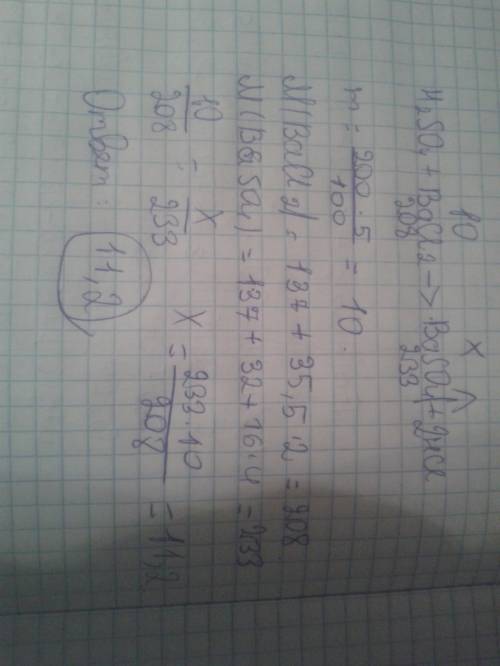 10 X
H₂SO₄ + BaCl₂ → BaSO₄↓ + 2HCl
208 233
m = 200·5/100 = 10.
M(BaCl₂) = 137 + 35,5·2 = 208
M(BaSO₄) = 137 + 32 + 16·4 = 233
10/208 = X/233 X = 233·10/208 = 11,2
Ответ: 11,2